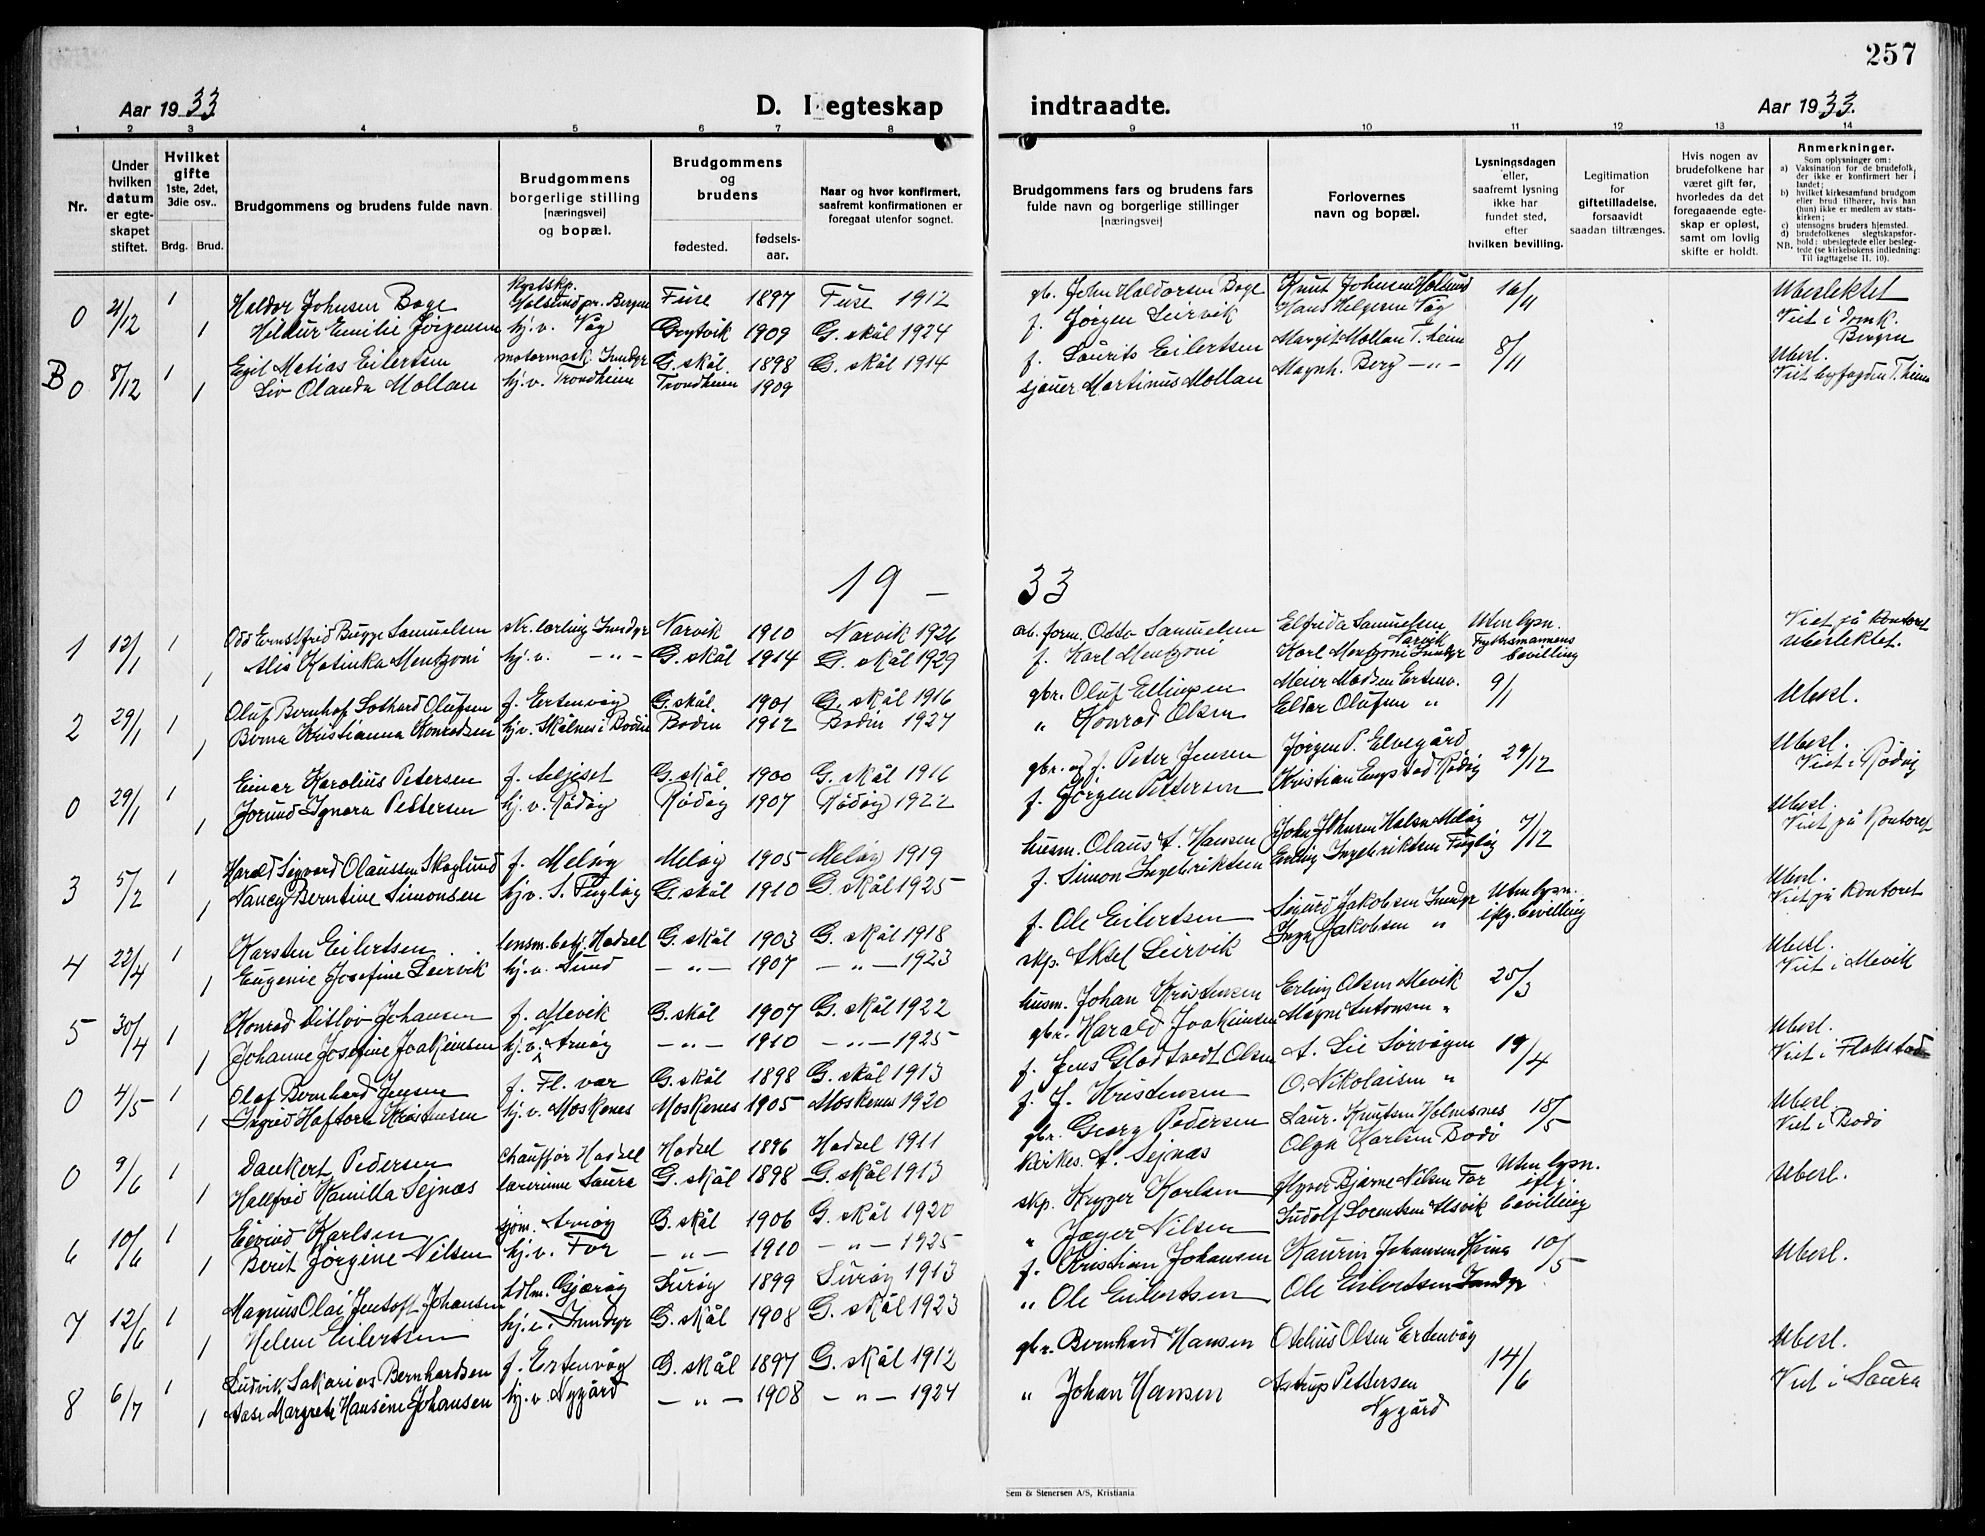 257
Aar 1933
D. I egteskap
indtraadte.
Aar 1933.
1 2 3 4 5 6 7 8 9 10 11 12 13 14
Nr.
Under hvilken datum er egte-skapet stiftet.
Hvilket gifte 1ste, 2det, 3die osv..
Brdg. Brud.
Brudgommens og brudens fulde navn.
Brudgommens borgerlige stilling [næringsvei] og bopæl.
Brudgommens og brudens
fødested.
fødsels-aar.
Naar og hvor konfirmert, saafremt konfirmationen er foregaat utenfor sognet.
Brudgommens fars og brudens fars fulde navn og borgerlige stillinger [næringsvei]
Forlovernes navn og bopæl.
Lysningsdagen eller, saafremt lysning ikke har fundet sted, efter hvilken bevilling.
Legitimation for giftetilladelse, forsaavidt saadan tiltrænges.
Hvis nogen av brudefolkene har været gift før, hvorledes da det foregaaende egte-skap er opløst, samt om lovlig skifte er holdt.
Anmerkninger.
Som oplysninger om:
a) Vaksination for de brudefolk, der ikke er konfirmert her i landet;
b) hvilket kirkesamfund brudgom eller brud tilhører, hvis han (hun) ikke er medlem av stats-kirken;
c) utensogns bruders hjemsted.
d) brudefolkenes slegtskapsfor-hold: ubeslegtede eller beslegtede (se kirkebokens indledning:
NB. Til iagttagelse II. 10).
0 21/12 1 Haldor Johnsen Boge Fuse 1897 Fuse 1912 gb. John Haldorsen Boge 16/11 Ubeslektet
1 Hildur Emilie Jörgensen hj.v. Våg 1909 G. skål 1924 f. Jörgen Leirvik Hans Helgesen Våg Viet i Domk. Bergen
B 0 8/12 1 Egil Matias Eilertsen G. skål. 1898 G. skål 1914 f. Laurits Eilertsen Margit Mollan T.heim 8/11 Ubesl.
1 Liv Olanda Mollan hj.v. Trondheim Trondheim 1909 sjauer Martinus Mollan Magnh. Berg — " — Viet byfogden T.heim
19 — 33
1 13/1 1 Odd Ernstfrid Bugge Samuelsen Narvik 1910 Narvik 1926 arb. form. Otto Samuelsen Elfrida Samuelsen Narvik Uten lysn. Viet på kontoret
1 Alis Katinka Mentzoni hj.v. — " — G. skål 1914 G. skål 1929 f. Karl Mentzoni Karl Mentzoni Inndyr Fylkesmannens bevilling Ubeslektet.
2 29/1 1 Oluf Bernhof Lothard Olufsen f. Ertenvåg G. skål. 1901 G. skål 1916 gbr. Oluf Ellingsen Meier Madsen Ertenv. 9/1 Ubesl.
1 Berna Kristianna Konradsen hj.v. Skålnes i Bodin Bodin 1912 Bodin 1927 " Konrad Olsen Eldar Olufsen "
0 29/1 1 Einar Karolius Petersen G. skål 1900 G. skål 1916 Peter Jensen Jørgen P. Elvegård 29/12 Ubesl.
1 Jorund Ignora Pettersen hj.v. Rödöy Rödöy 1907 Rödöy 1922 f. Jörgen Pettersen Kristian Engstad Rödöy Viet i Rödöy
3 5/2 1 Harald Sigvard Olaussen Skoglund f. Melöy Melöy 1905 Melöy 1919 husm. Olaus A. Hansen John Johnsen Halsa Melöy 7/12 Ubesl.
1 Nancy Berntine Simonsen hj.v. S. Fugløy G. skål 1910 G. skål 1925 f. Simon Ingebriktsen Erling Ingebriktsen Fugløy Viet på kontoret
4 22/4 1 Karsten Eilertsen lensm.betj. Hadsel G. skål 1903 G. skål 1918 f. Ole Eilertsen Sigurd Jakobsen Inndyr Uten lysn. Ubesl.
1 Eugenie Josefine Leirvik hj.v. Sund — " — 1907 — " — 1923 skp. Aksel Leirvik Inga Jakobsen " iflg. bevilling Viet på kontoret
5 30/4 1 Konrad Ditlov Johansen f. Mevik G. skål 1907 G. skål 1922 husm. Johan Kristensen Erling Olsen Mevik 25/3 Ubesl.
1 Johanne Josefine Joakimsen hj.v. Arnöy — " — 1910 — " — 1925 gbr. Harald Joakimsen Magni Antonsen " Viet i Mevik
0 4/5 1 Olaf Bernhard Jensen f. Fl. vær G. skål 1898 G. skål 1913 f. Jens Gladtvedt Olsen A. Lie Sörvågen 19/4 Ubesl.
1 Ingrid Haftora Kristensen hj.v. Moskenes Moskenes 1905 Moskenes 1920 f. J. Kristensen O. Nikolaisen " Viet i Flakstad
0 9/6 1 Dankert Pedersen chauffør Hadsel Hadsel 1896 Hadsel 1911 gbr. Georg Pedersen Laur. Knutsen Holmsnes 18/5 Ubesl.
1 Hallfrid Kamilla Sejnæs lærerinne Saura G. skål 1898 G. skål 1913 kirkes. A. Sejnæs Olga Karlsen Bodö Viet i Bodö
6 10/6 1 Eivind Karlsen sjöm. Arnöy G. skål 1906 G. skål 1920 skp. Krygger Karlsen Bjarne Nilsen For Uten lysn. Ubesl.
1 Berit Jörgine Nilsen hj.v. For — " — 1910 — " — 1925 " Jæger Nilsen Ludolf Lorentsen Alsvik iflg. bevilling
7 12/6 1 Magnus Olai Jentoft Johansen Gjæröy Luröy 1899 Luröy 1913 f. Kristian Johansen Kaurin Johansen 10/5 Ubesl.
1 Helene Eilertsen hj.v. Inndyr G. skål 1908 G. skål 1923 " Ole Eilertsen Ole Eilertsen Inndyr
8 6/7 1 Ludvik Sakarias Bernhardsen f. Ertenvåg G. skål 1897 G. skål 1912 gbr. Bernhard Hansen Otelius Olsen Ertenvåg 14/6 Ubesl.
1 Aase Margrete Hansine Johansen hj.v. Nygård — " — 1908 — " — 1924 " Johan Hansen Astrup Pettersen Nygård Viet i Saura
Sem & Stenersen A/S, Kristiania